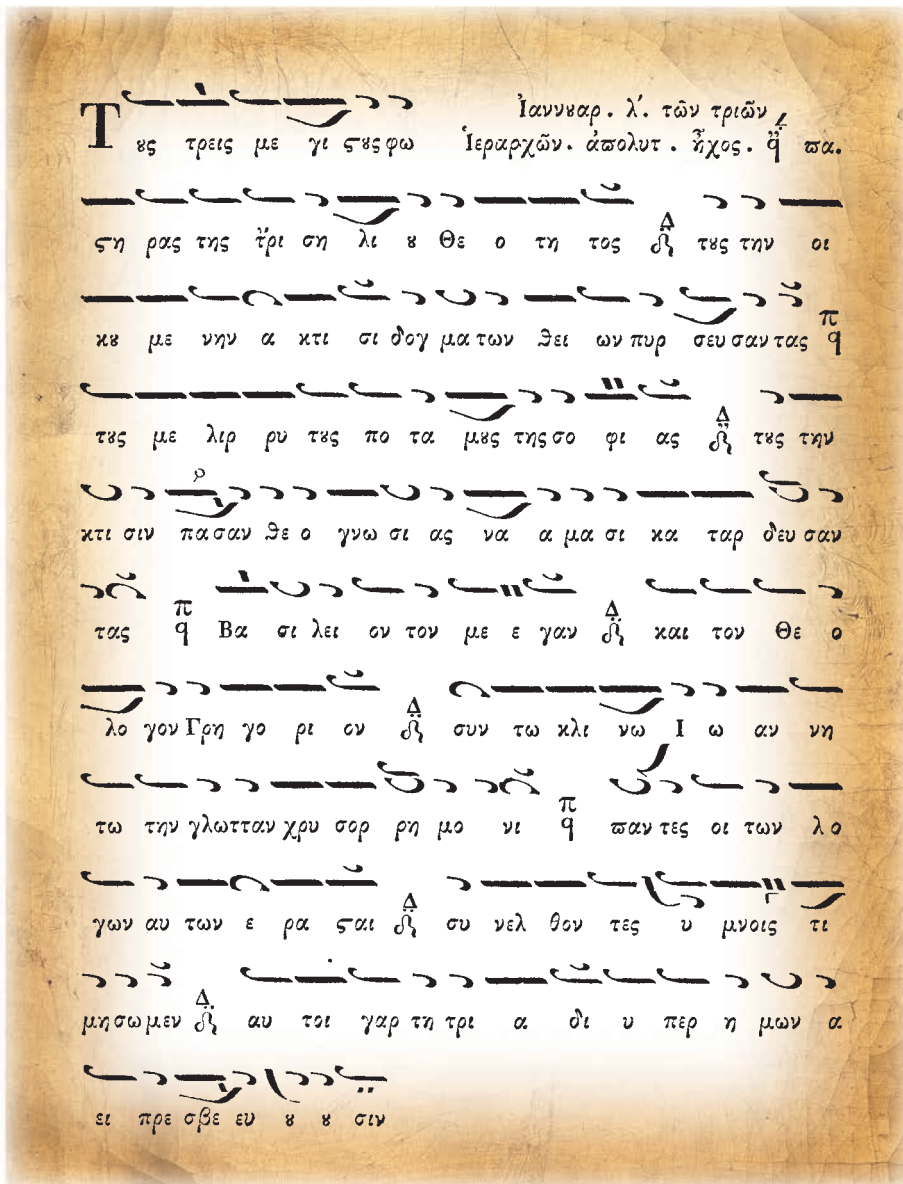 Ἰαννȣαρ . λ΄. τῶν τριῶν
Τȣς τρεις με γι ϛȣς φω Ἱεραρχῶν . ἀπολυτ . ἦχος . ϖα.
ϛη ρας της τρι ση λι ȣ Θε ο τη τος Δ τȣς την οι
κȣ με νην α κτι σι δογ μα των ϑει ων πυρ σευ σαν τας π
τȣς με λιρ ρυ τȣς πο τα μȣς της σο φι ας Δ τȣς την
κτι σιν πα σαν ϑε ο γνω σι ας να α μα σι κα ταρ δευ σαν
τας π Βα σι λει ον τον με ε γαν Δ και τον Θε ο
λο γον Γρη γο ρι ον Δ συν τω κλι νω Ι ω αν νη
τω την γλωτταν χρυ σορ ρη μο νι π ϖαν τες οι των λο
γων αυ των ε ρα ϛαι Δ συ νελ θον τες υ μνοις τι
μη σω μεν Δ αυ τοι γαρ τη τρι α δι υ περ η μων α
ει πρε σβε ευ ȣ ȣ σιν